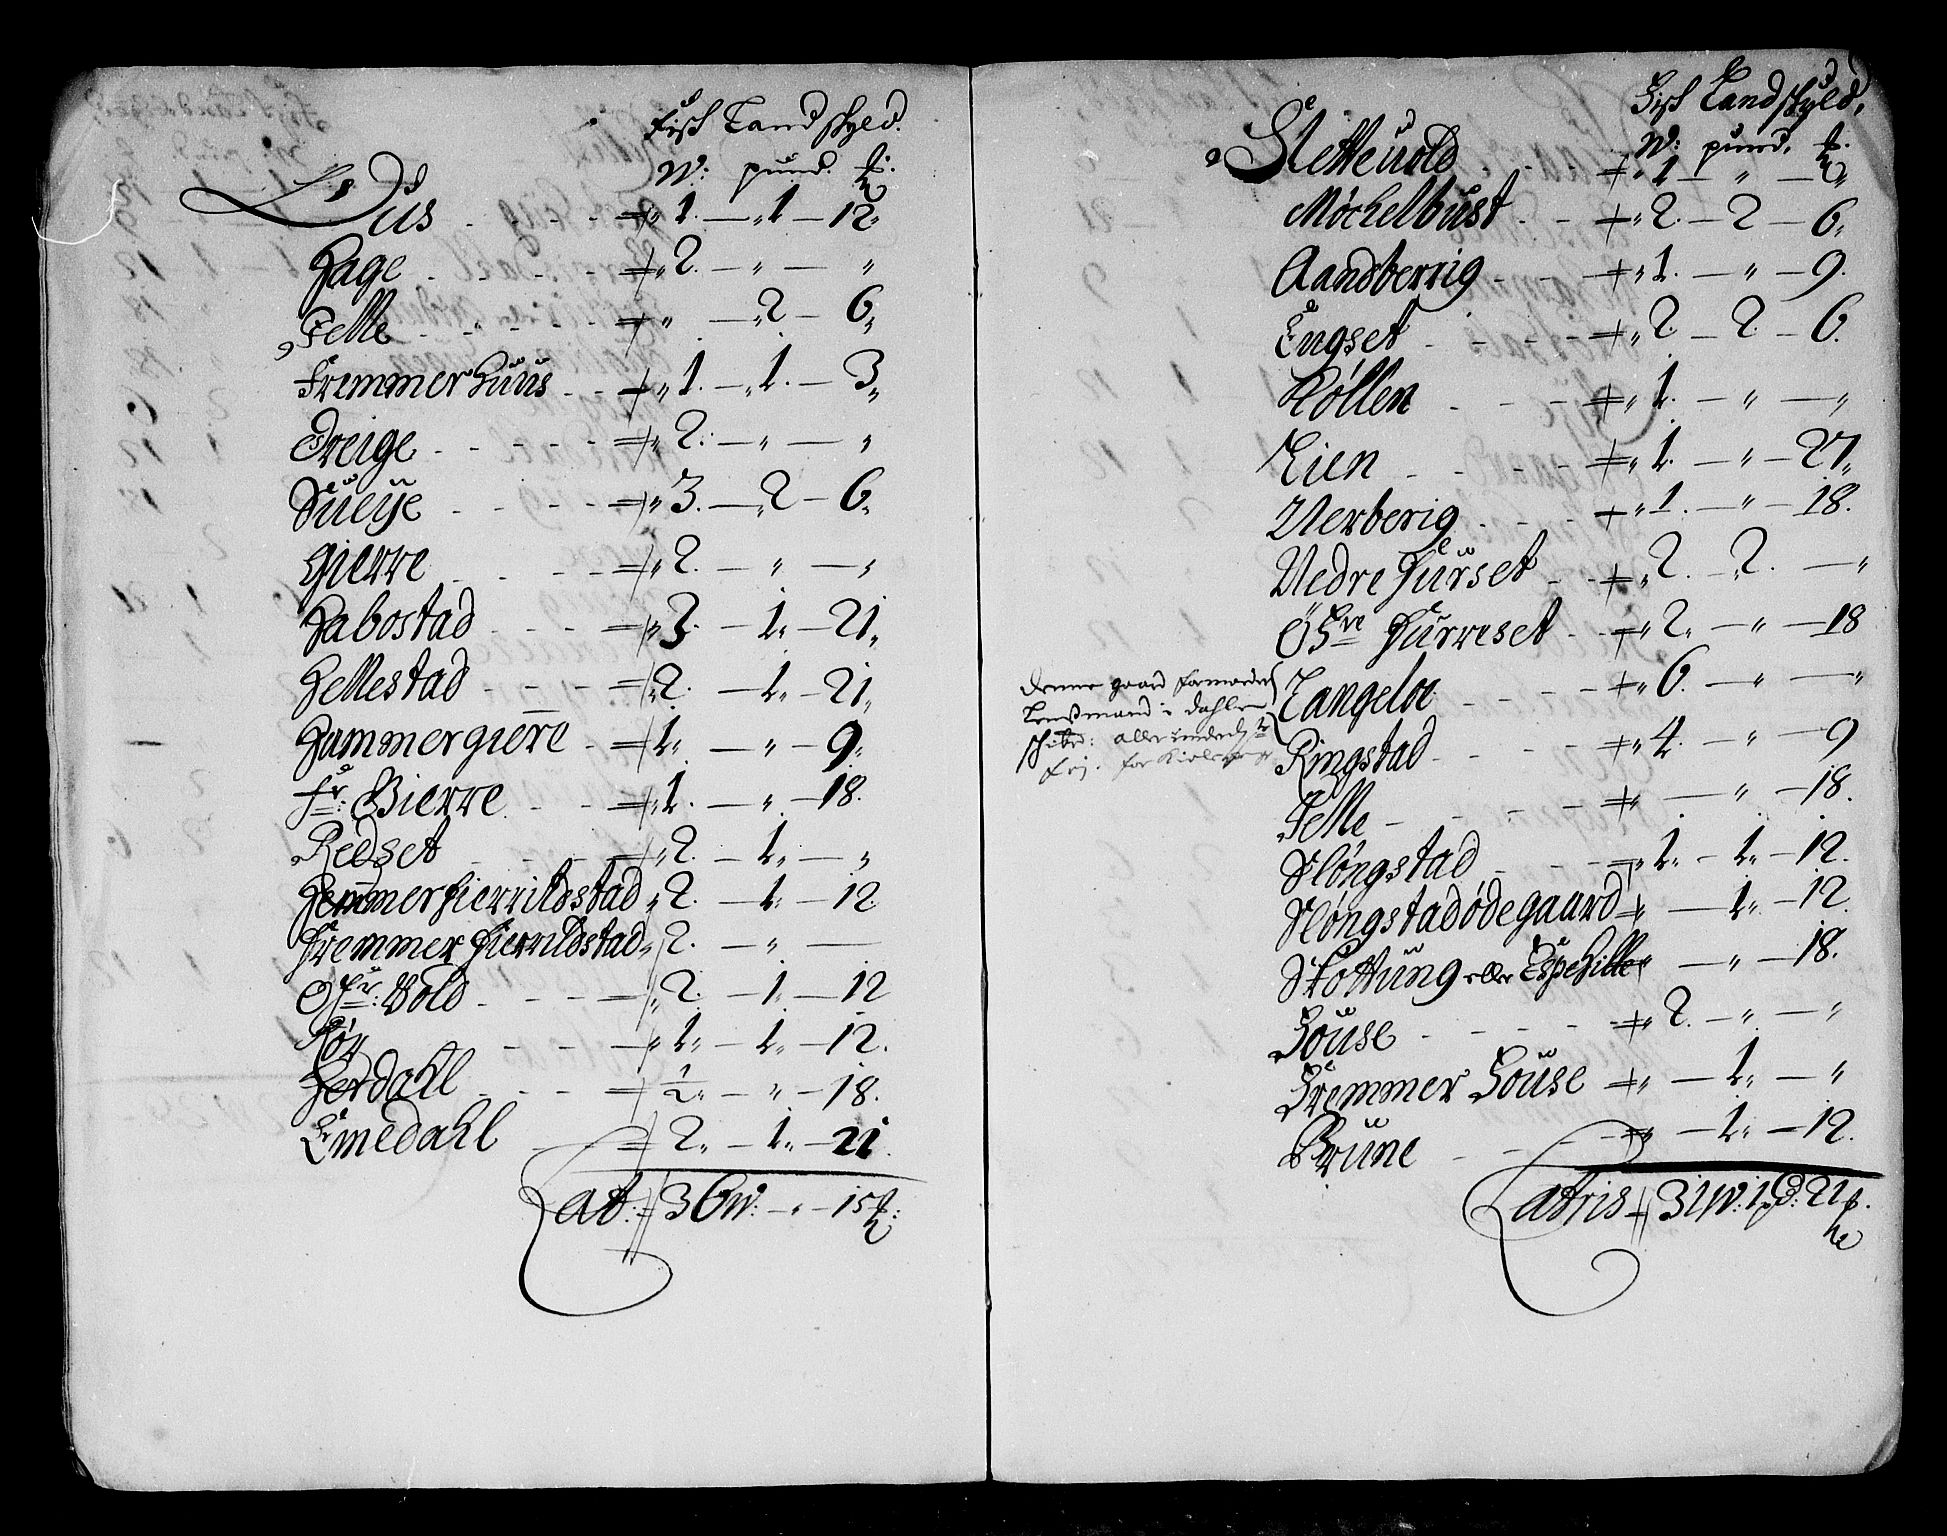 Fisk Landskyld.
W: pund. ℔:
Aus - - - 1. — 1 — 12
Hage - - - 2. — " — "
Selle - - - " — 2 — 6
Fremmer Huus - - 1. — 1. — 3
Dreige - - - 2. — " — "
Süeÿe - - - 3. — 2 — 6
Gierre - - - 2. — " — "
Habostad - - - 3. — 1. — 21
Hellestad - - - 2. — 1. — 21
Hammergiere - 1. — " — 9
Fr: Bierre - - 1. — " — 18.
Redset - - - 2. — 1. — "
Hemmerhierrildstad 2. — 1. — 12
Fremmer hierrildstad 2. — " —
Ofr: Vold - - - 2. — 1. — 12
Rör - - - 1. — 1. — 12.
Herdahl - - - ½ — " — 18.
Emedahl - - 2. — 1. — 21
Lat: 36 W: — " — 15 ℔:
Fisk Landskyld.
W: pund. ℔.
Slettevold - - 1 — " — "
Möchelbust - - 2. — 2 — 6
Aandberrig - - - 1. — " — 9.
Engset - - - 2. — 2. — 6.
Röllen - - - 1. — " — "
Lien - - - 1. — " — 27
Verberig - - - 1. — " — 18.
Nedre Hürset - - 2. — 2. — "
Öfre Hürreset - - 2. — " — 18
Denne gaard
Lensmand i Dahlen
fri. for
Langeloe - - - 6. — " — "
Ringstad - - - 4. — " — 9
Selle - - - " — " — 18.
Klöngstad - - - 1. — 1. — 12.
Klöngstadödegaard " — 1. — 12.
Skottüng eller Espehille " — " — 18.
Souse - - - 2. — " — "
Fremmer Souse " — 1. — "
Brüne - - - " — 1. — 12.
Latris 31 W: 1 pd: 21 ℔.